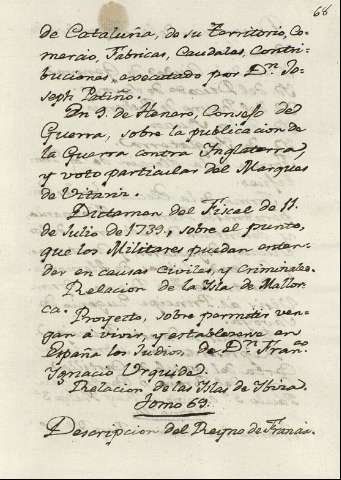 68
de Cataluña, de su Territorio, Co-
mercio, Fabricas, Caudales, Contri-
buciones, executado por Dn. Jo-
seph Patiño.
En 9. de Henero, Consejo de
Guerra, sobre la publicacion de
la Guerra contra Inglaterra,
y voto particular del Marques
de Vitariz.
Dictamen del Fiscal de 11.
de Julio de 1739., sobre el punto,
que los Militares puedan enten-
der en causas civiles, y criminales.
Relacion de la Isla de Mallor-
ca.
Proyecto, sobre permitir ven-
gan á vivir, y establezerse en
España los Judios, de Dn. Franco.
Ignacio Urquide.
Relacion de las Islas de Ibiza.
Tomo 69.
Descripcion del Reyno de Francia.